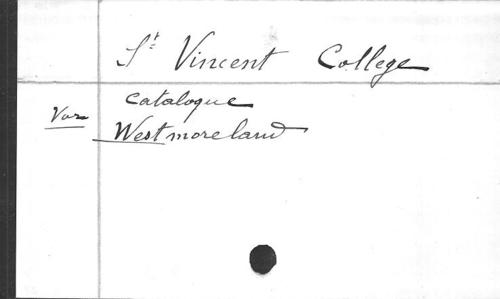 St. Vincent College
Catalogue
Var
Westmoreland